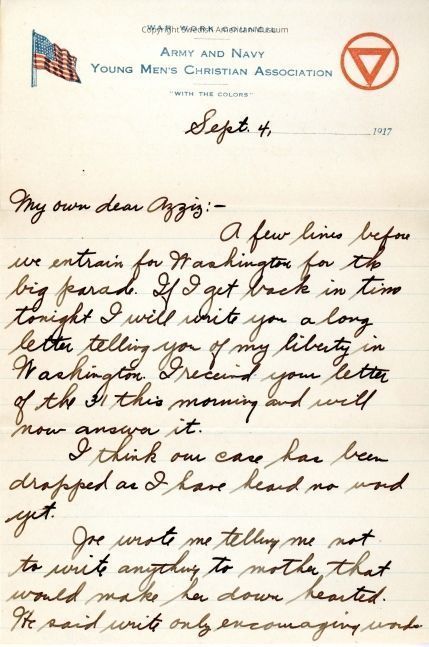 WAR WORK COUNCIL
Copyright Swedish American Museum
ARMY AND NAVY
YOUNG MEN'S CHRISTIAN ASSOCIATION
"WITH THE COLORS"
Sept. 4, 1917
My own dear Azziz:-
A few lines before
we entrain for Washington for the
big parade. If I get back in time
tonight I will write you a long
letter telling you of my liberty in
Washington. I receivd your letter
of the 31 this morning and will
now answer it.
I think our case has been
dropped as I have heard no word
yet.
Joe wrote me telling me not
to write anything to mother that
would make her down hearted.
He said write only encouraging words